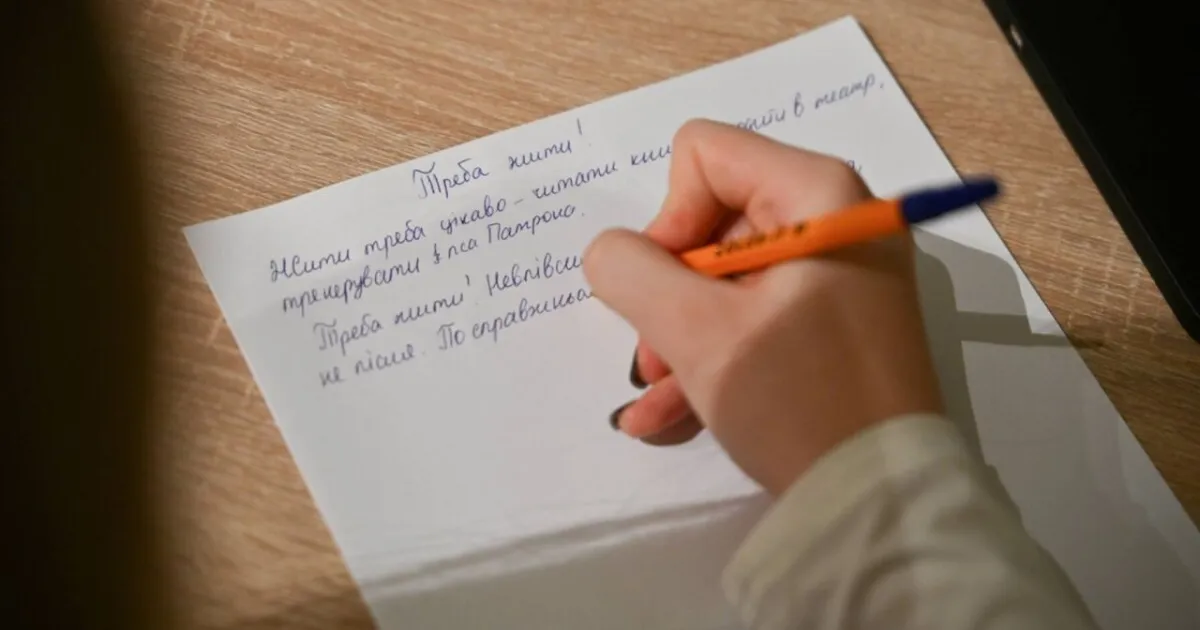 Треба жити!
Жити треба цікаво - читати в театр,
тренерувати пса Патрона.
Треба жити!
не після. По справжньо